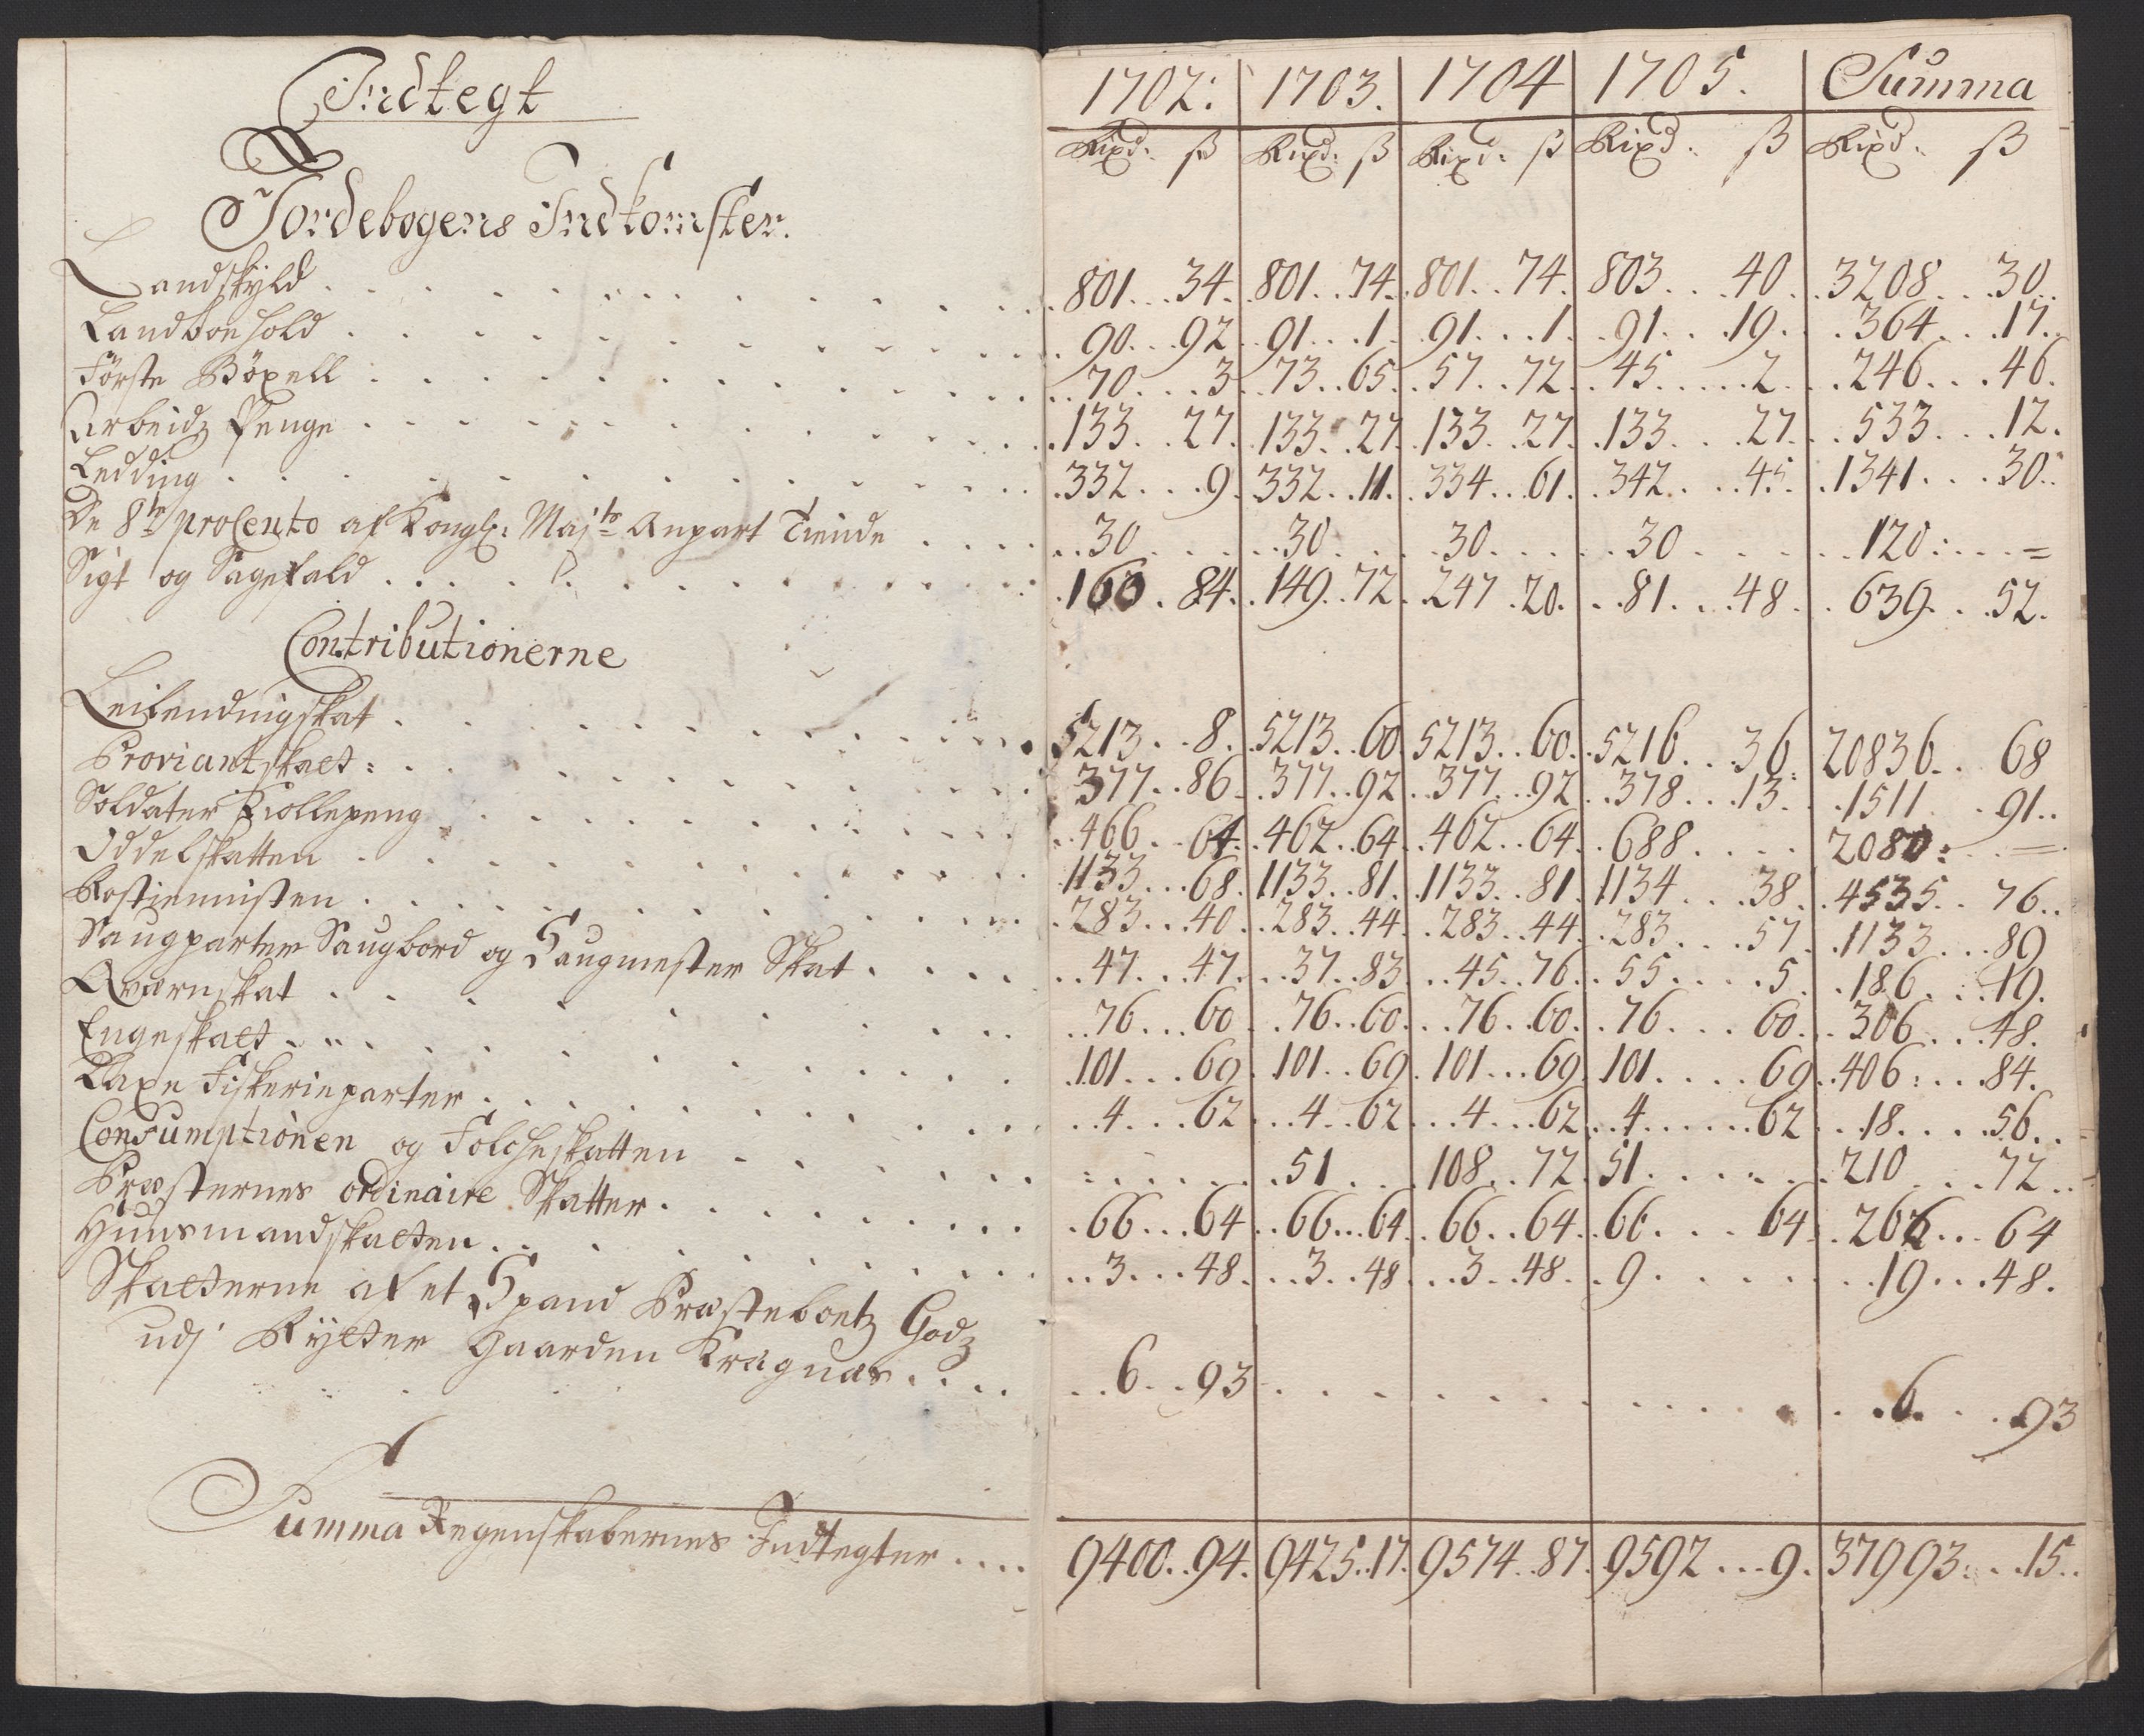 Indtegt
Jordebogens Indkomster.
Landskÿld
Landboe hold
Förste Böxell
Arbeidz Penge
Ledding
De 8te proCento af Kongl: Majts Anpart Tiende
Sigt og Sagefald
Contributionerne
Leilendingskat
Proviantskatt:
Soldater Kiollepeng
Oddelskatten
Rostienisten
Saugparter Saugbord og Saugmester Skat
Qværnskat
Engeskatt
Laxe Fiskerieparter
Consumptionen og Folcheskatten
Præsternes ordinaire Skatter
Huusmandskatten
Skatterne af et Spand Præsteboelz Godz
udj Rÿtter Gaarden Kragnæs
Summa Regenskabernes Indtegter
1702: 1703. 1704 1705. Summa
Rixd: ß Rixd: ß Rixd: ß Rixd: ß Rixd: ß
801 34. 801 74. 801 74. 803 40 3208 30
90 92 91 1 91 1 91 19 364 17
70 3 73 65 57 72 45 2 246 46
133 27 133 27 133 27 133 27 533 12
332 9 332 11 334 61 342 45 1341 30
30 30 30 30 120: =
160 84 149 72 247 20 81 48 639 52
5213 8 5213 60 5213 60 5216 36 20836 68
377 86 377 92 377 92 378 13 1511 91
466 64 462 64 462 64 688 2080: =
1133 68 1133 81 1133 81 1134 38 4535 76
283 40 283 44 283 44 283 57 1133 89
47 47 37 83 45 76 55 5 186 19
76 60 76 60 76 60 76 60 306 48
101 69 101 69 101 69 101 69 406: 84
4 62 4 62 4 62 4 62 18 56
51 108 72 51 210 72
66 64 66 64 66 64 66 64 266 64
3 48 3 48 3 48 9 19 48
6 93 6 93
9400 94 9425 17 9574 87 9592 9 37993 15